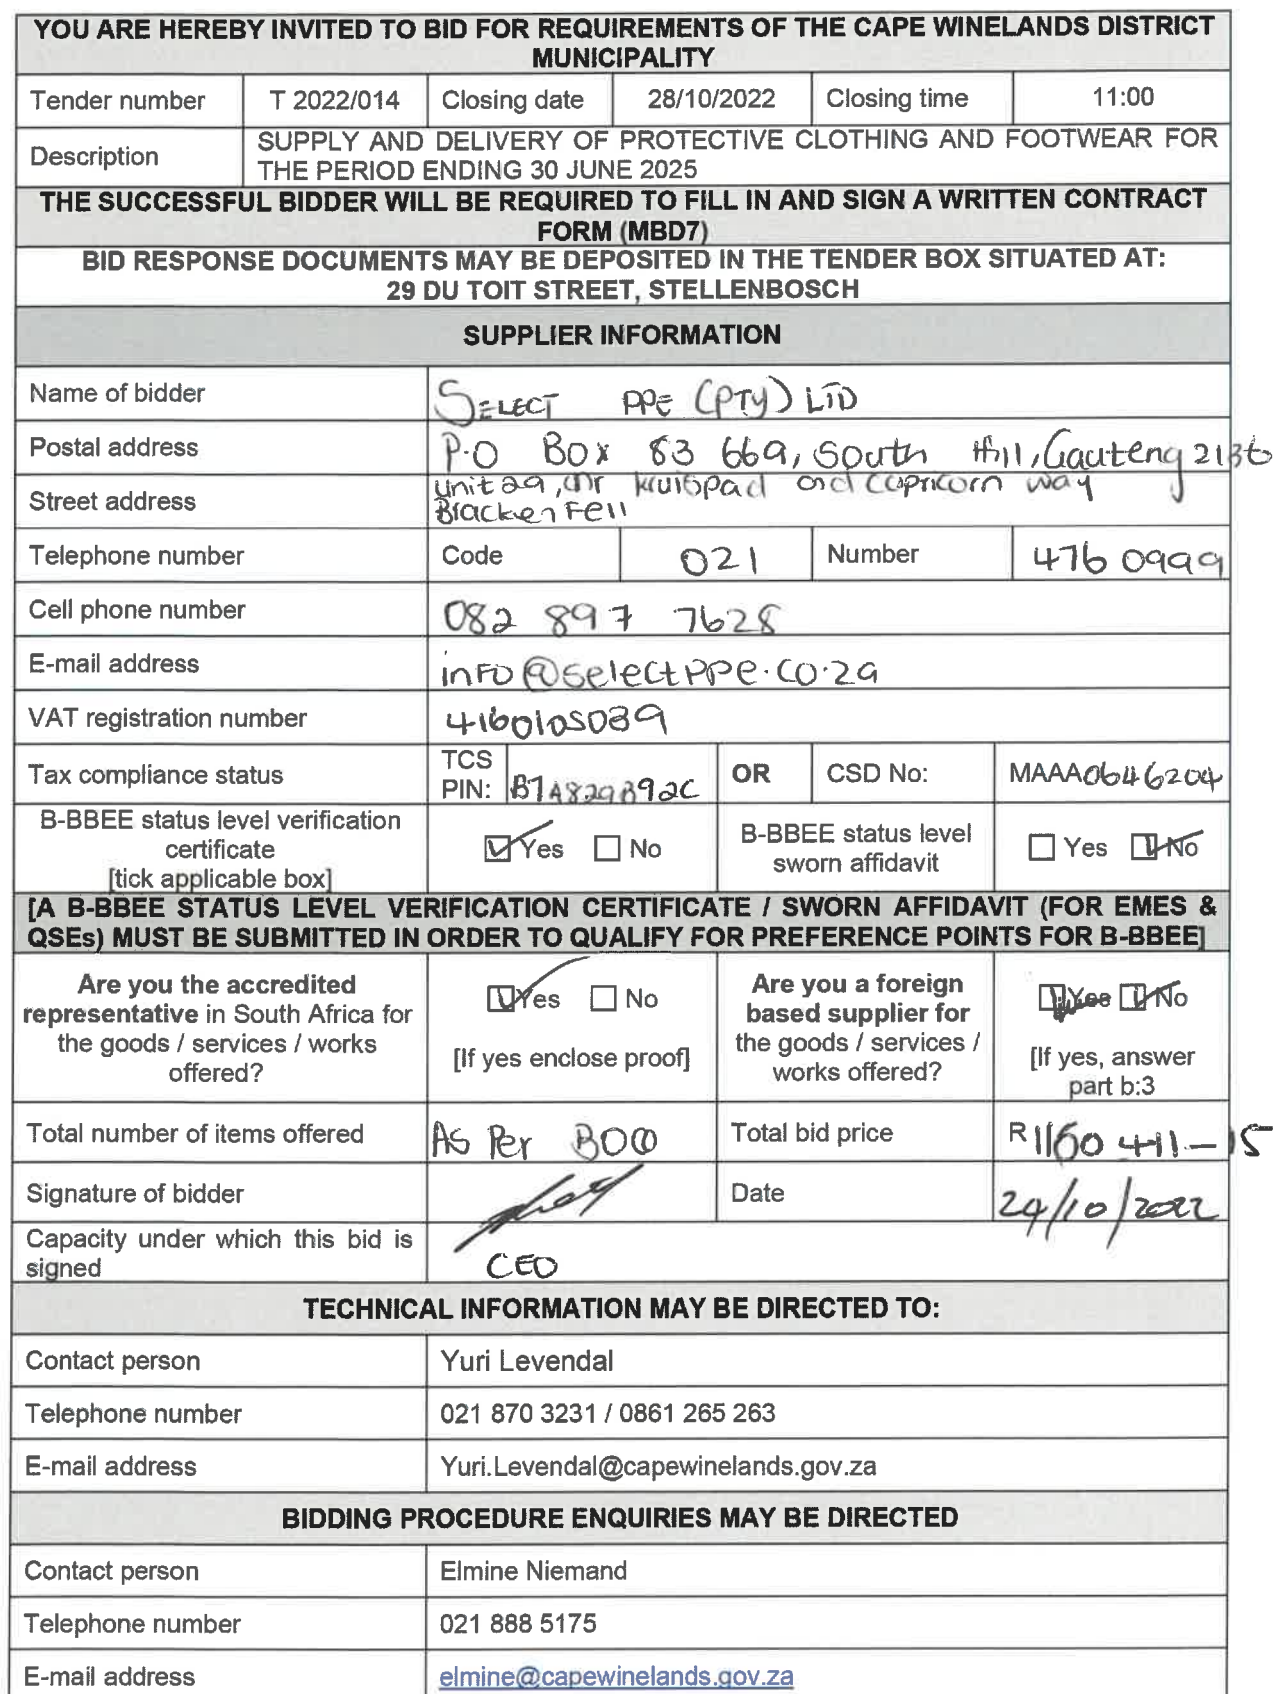 YOU ARE HEREBY INVITED TO BID FOR REQUIREMENTS OF THE CAPE WINELANDS DISTRICT
MUNICIPALITY
Tender number T 2022/014 Closing date 28/10/2022 Closing time 11:00
Description SUPPLY AND DELIVERY OF PROTECTIVE CLOTHING AND FOOTWEAR FOR
THE PERIOD ENDING 30 JUNE 2025
THE SUCCESSFUL BIDDER WILL BE REQUIRED TO FILL IN AND SIGN A WRITTEN CONTRACT
FORM (MBD7)
BID RESPONSE DOCUMENTS MAY BE DEPOSITED IN THE TENDER BOX SITUATED AT:
29 DU TOIT STREET, STELLENBOSCH
SUPPLIER INFORMATION
Name of bidder SELECT PPE (PTY) LTD
Postal address P.O Box 83 669, South Hill, Gauteng 2136
Street address Unit 29, cnr kruispad and capricorn way
Brackenfell
Telephone number Code 021 Number 476 0999
Cell phone number 082 897 7628
E-mail address info@selectppe.co.za
VAT registration number 4160105089
Tax compliance status TCS PIN: B7A829B92C OR CSD No: MAAA0646204
B-BBEE status level verification
certificate
[tick applicable box] Yes No B-BBEE status level
sworn affidavit Yes No
[A B-BBEE STATUS LEVEL VERIFICATION CERTIFICATE / SWORN AFFIDAVIT (FOR EMES &
QSEs) MUST BE SUBMITTED IN ORDER TO QUALIFY FOR PREFERENCE POINTS FOR B-BBEE]
Are you the accredited
representative in South Africa for
the goods / services / works
offered? Yes No
[If yes enclose proof]
Are you a foreign
based supplier for
the goods / services /
works offered? Yes No
[If yes, answer
part b:3
Total number of items offered As Per BOQ Total bid price R 1160 411-15
Signature of bidder Date 24/10/2022
Capacity under which this bid is
signed CEO
TECHNICAL INFORMATION MAY BE DIRECTED TO:
Contact person Yuri Levendal
Telephone number 021 870 3231 / 0861 265 263
E-mail address Yuri.Levendal@capewinelands.gov.za
BIDDING PROCEDURE ENQUIRIES MAY BE DIRECTED
Contact person Elmine Niemand
Telephone number 021 888 5175
E-mail address elmine@capewinelands.gov.za